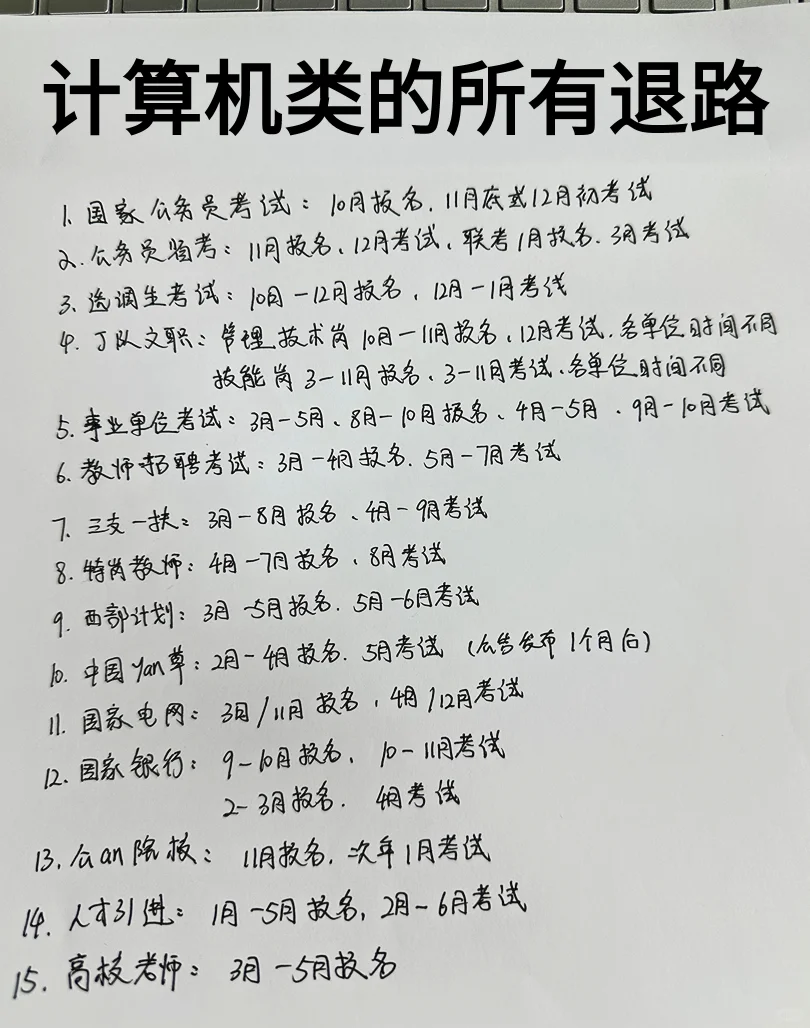 计算机类的所有退路
1. 国家公务员考试：10月报名、11月底或12月初考试
2. 公务员省考：11月报名、12月考试、联考1月报名、3月考试
3. 选调生考试：10月—12月报名、12月—1月考试
4. J队文职：管理技术岗 10月—11月报名、12月考试、各单位时间不同
技能岗 3—11月报名、3—11月考试、各单位时间不同
5. 事业单位考试：3月—5月、8月—10月报名、4月—5月、9月—10月考试
6. 教师招聘考试：3月—4月报名、5月—7月考试
7. 三支一扶：3月—8月报名、4月—9月考试
8. 特岗教师：4月—7月报名、8月考试
9. 西部计划：3月—5月报名、5月—6月考试
10. 中国yan草：2月—4月报名、5月考试（公告发布1个月后）
11. 国家电网：3月/11月报名、4月/12月考试
12. 国家银行：9—10月报名、10—11月考试
2—3月报名、4月考试
13. 公an院校：11月报名、次年1月考试
14. 人才引进：1月—5月报名，2月—6月考试
15. 高校老师：3月—5月报名